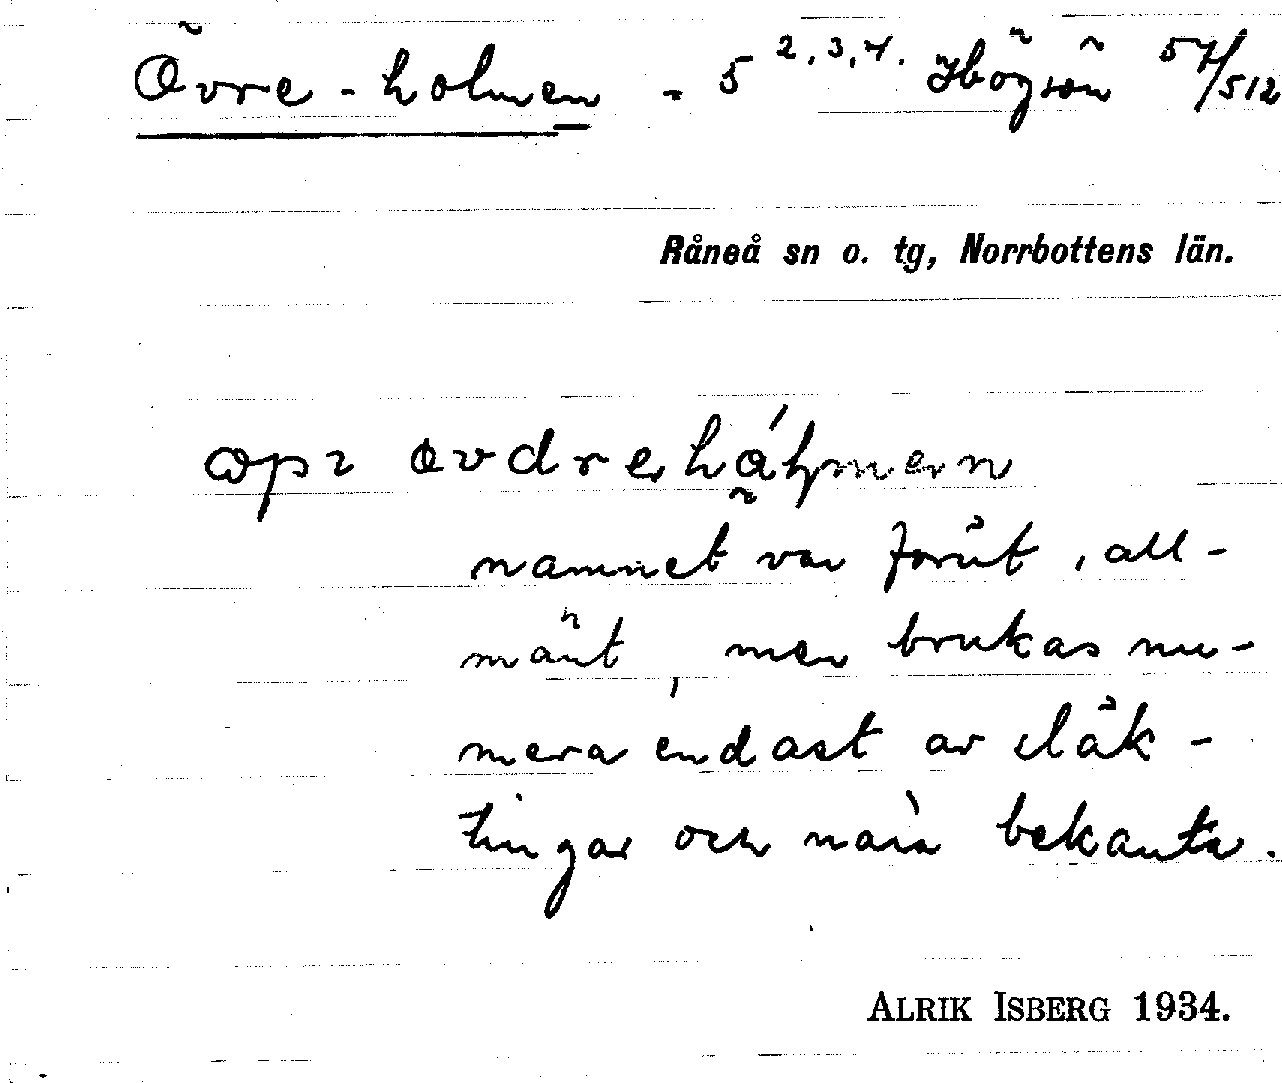 Övre-holmen - 5 2, 3, 4. Högsön 54/512
Råneå sn o. tg, Norrbottens län.
namnet var förut, all-
mänt, men brukas nu-
mera endast av släk-
tingar och nära bekanta.
ALRIK ISBERG 1934.